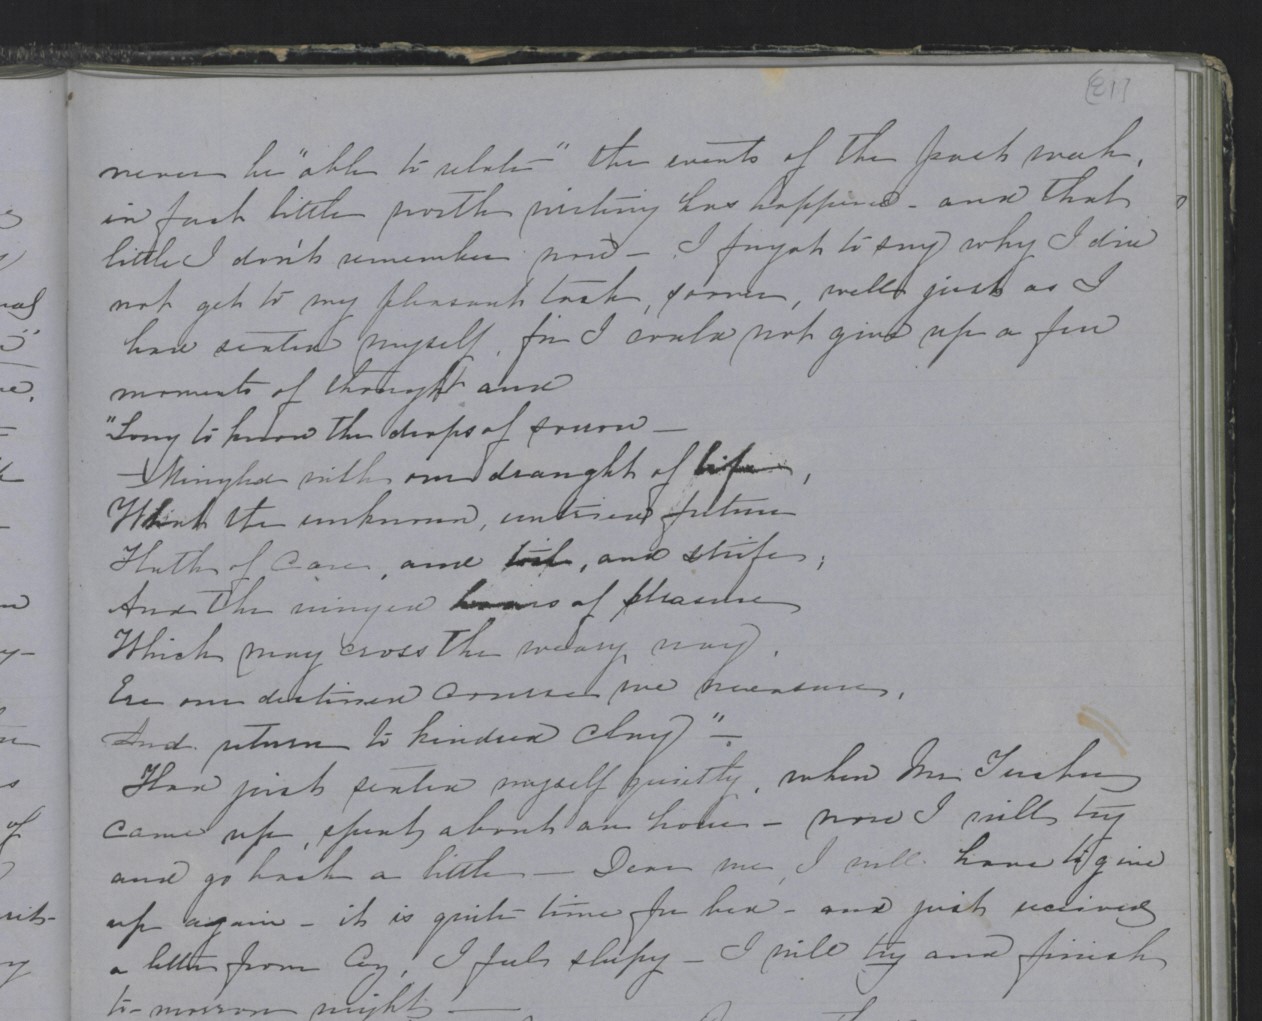 [21]
never be "able to relate" the events of the past week,
in fact little worth writing has happened - and that
little I don't remember now - I forgot to say why I did
not get to my pleasant task, sooner, well just as I
had seated myself, for I could not give up a few
moments of thought and
"Long to know the drops of sorrow -
- Mingled with our draught of life,
What the unknown, untried future
Hath of care, and toil, and strife;
And the winged hours of pleasure
Which may cross the weary way,
Ere our destined course we measure,
And return to kindred clay" -
Had just seated myself quietly, when Mr Tucker
came up, spent about an hour - now I will try
and go back a little - Dear me, I will have to give
up again - it is quite time for bed - and just received
a letter from Coz, I feel sleepy - I will try and finish
to-morrow night -